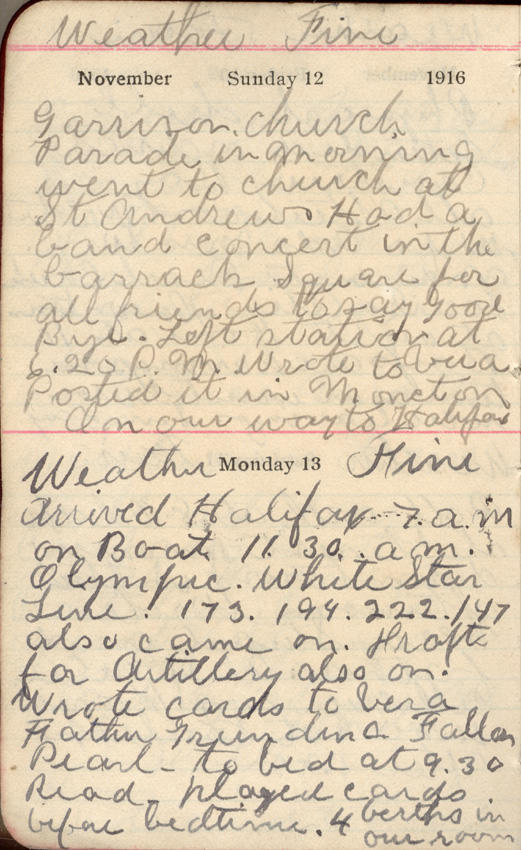 Weather Fine
November Sunday 12 1916
Garrison church
Parade in morning
went to church at
St Andrews Had a
band concert in the
barrack Square for
all friends to say Good
Bye. Left station at
6.20 P.M. Wrote to Vera
Posted it in Moncton
On our way to Halifax
Weather Monday 13 Fine
Arrived Halifax 7. a.m
on Boat 11.30. a.m.
Olympic. White Star
Line. 173. 194. 222. 147
also came on. Drafts
for Artillery also on.
Wrote cards to Vera
Father Fallon
Pearl - to bed at 9.30
Read - played cards
before bedtime. 4 berths in
our room